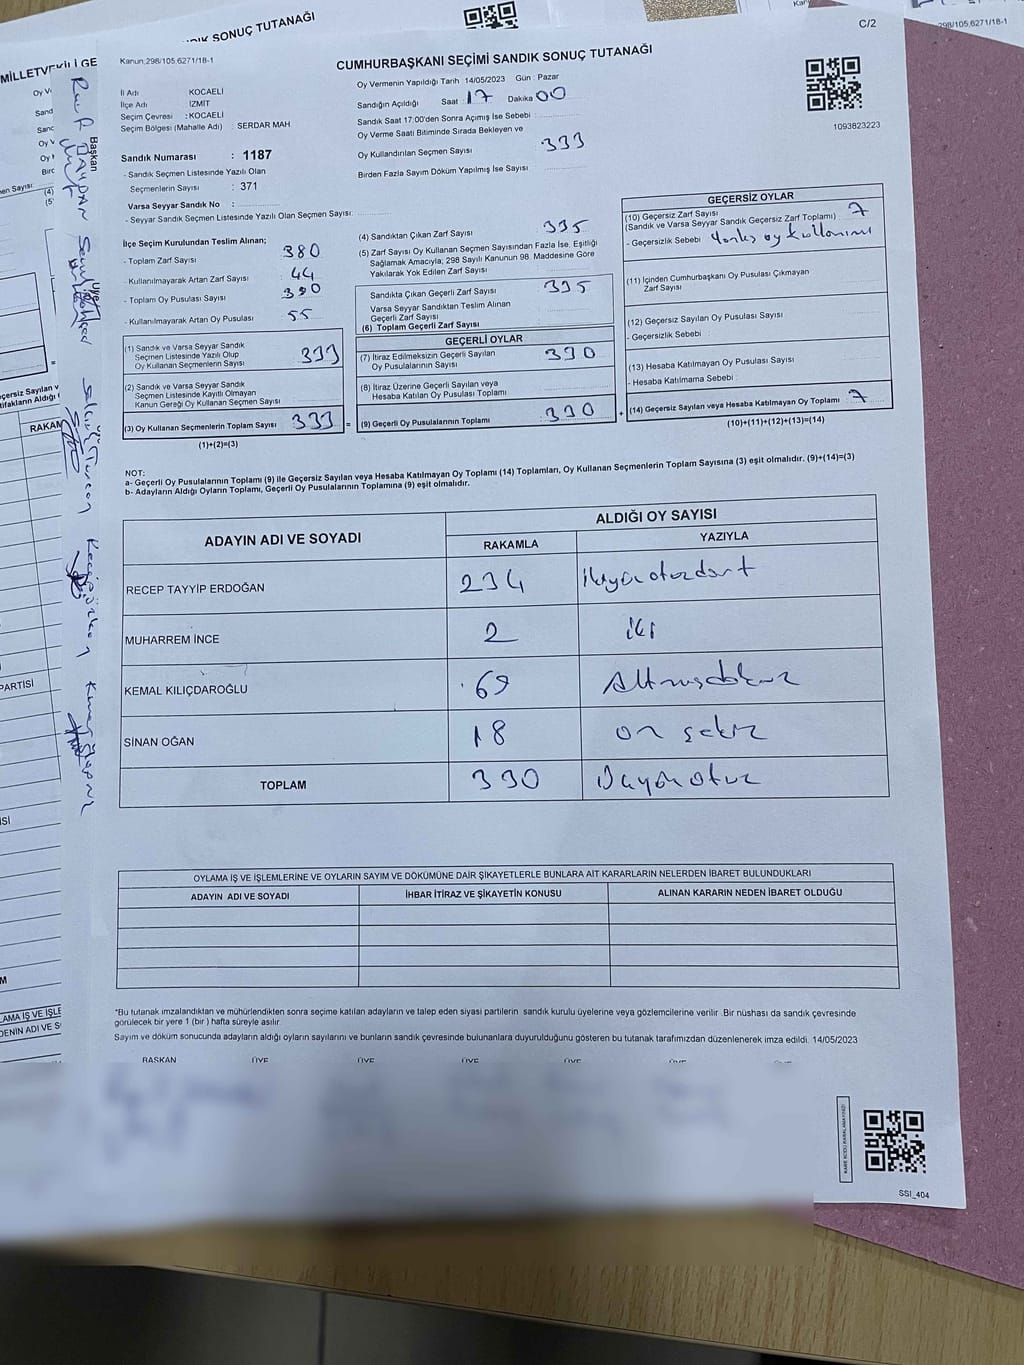 SANDIK SONUÇ TUTANAĞI
Kanun:298/105,6271/18-1
CUMHURBAŞKANI SEÇİMİ SANDIK SONUÇ TUTANAĞI
C/2
298/105,6271/18-1
İl Adı KOCAELİ
İlçe Adı İZMİT
Seçim Çevresi : KOCAELİ
Seçim Bölgesi (Mahalle Adı) : SERDAR MAH
Oy Vermenin Yapıldığı Tarih 14/05/2023 Gün : Pazar
Sandığın Açıldığı Saat : 17 Dakika 00
Sandık Saat 17:00'den Sonra Açımış İse Sebebi :
Oy Verme Saati Bitiminde Sırada Bekleyen ve
Oy Kullandırılan Seçmen Sayısı 333
Birden Fazla Sayım Döküm Yapılmış İse Sayısı
1093823223
Sandık Numarası : 1187
- Sandık Seçmen Listesinde Yazılı Olan
Seçmenlerin Sayısı : 371
Varsa Seyyar Sandık No :
- Seyyar Sandık Seçmen Listesinde Yazılı Olan Seçmen Sayısı:
İlçe Seçim Kurulundan Teslim Alınan;
- Toplam Zarf Sayısı 380
- Kullanılmayarak Artan Zarf Sayısı 44
- Toplam Oy Pusulası Sayısı
- Kullanılmayarak Artan Oy Pusulası 55
(1) Sandık ve Varsa Seyyar Sandık
Seçmen Listesinde Yazılı Olup
Oy Kullanan Seçmenlerin Sayısı 333
(2) Sandık ve Varsa Seyyar Sandık
Seçmen Listesinde Kayıtlı Olmayan
Kanun Gereği Oy Kullanan Seçmen Sayısı
(3) Oy Kullanan Seçmenlerin Toplam Sayısı 333 =
(1)+(2)=(3)
(4) Sandıktan Çıkan Zarf Sayısı 335
(5) Zarf Sayısı Oy Kullanan Seçmen Sayısından Fazla İse, Eşitliği
Sağlamak Amacıyla; 298 Sayılı Kanunun 98. Maddesine Göre
Yakılarak Yok Edilen Zarf Sayısı
Sandıkta Çıkan Geçerli Zarf Sayısı 335
Varsa Seyyar Sandıktan Teslim Alınan
Geçerli Zarf Sayısı
(6) Toplam Geçerli Zarf Sayısı
GEÇERLİ OYLAR
(7) İtiraz Edilmeksizin Geçerli Sayılan
Oy Pusulalarının Sayısı 330
(8) İtiraz Üzerine Geçerli Sayılan veya
Hesaba Katılan Oy Pusulası Toplamı
(9) Geçerli Oy Pusulalarının Toplamı 330 +
GEÇERSİZ OYLAR
(10) Geçersiz Zarf Sayısı 7
(Sandık ve Varsa Seyyar Sandık Geçersiz Zarf Toplamı)
- Geçersizlik Sebebi yanlış oy kullanımı
(11) İçinden Cumhurbaşkanı Oy Pusulası Çıkmayan
Zarf Sayısı
(12) Geçersiz Sayılan Oy Pusulası Sayısı
- Geçersizlik Sebebi :
(13) Hesaba Katılmayan Oy Pusulası Sayısı
- Hesaba Katılmama Sebebi :
(14) Geçersiz Sayılan veya Hesaba Katılmayan Oy Toplamı 7
(10)+(11)+(12)+(13)=(14)
NOT:
a- Geçerli Oy Pusulalarının Toplamı (9) ile Geçersiz Sayılan veya Hesaba Katılmayan Oy Toplamı (14) Toplamları, Oy Kullanan Seçmenlerin Toplam Sayısına (3) eşit olmalıdır. (9)+(14)=(3)
b- Adayların Aldığı Oyların Toplamı, Geçerli Oy Pusulalarının Toplamına (9) eşit olmalıdır.
ADAYIN ADI VE SOYADI ALDIĞI OY SAYISI
RAKAMLA YAZIYLA
RECEP TAYYİP ERDOĞAN 234 ikiyüz otuzdört
MUHARREM İNCE 2 iki
KEMAL KILIÇDAROĞLU 69
SİNAN OĞAN 18 on sekiz
TOPLAM 330 üçyüz otuz
OYLAMA İŞ VE İŞLEMLERİNE VE OYLARIN SAYIM VE DÖKÜMÜNE DAİR ŞİKAYETLERLE BUNLARA AİT KARARLARIN NELERDEN İBARET BULUNDUKLARI
ADAYIN ADI VE SOYADI İHBAR İTİRAZ VE ŞİKAYETİN KONUSU ALINAN KARARIN NEDEN İBARET OLDUĞU
*Bu tutanak imzalandıktan ve mühürlendikten sonra seçime katılan adayların ve talep eden siyasi partilerin sandık kurulu üyelerine veya gözlemcilerine verilir. Bir nüshası da sandık çevresinde
görülecek bir yere 1 (bir) hafta süreyle asılır.
Sayım ve döküm sonucunda adayların aldığı oyların sayılarını ve bunların sandık çevresinde bulunanlara duyurulduğunu gösteren bu tutanak tarafımızdan düzenlenerek imza edildi. 14/05/2023
BAŞKAN ÜYE ÜYE ÜYE ÜYE ÜYE
SSI_404
Başkan
Üye
RAKAM
PARTİSİ